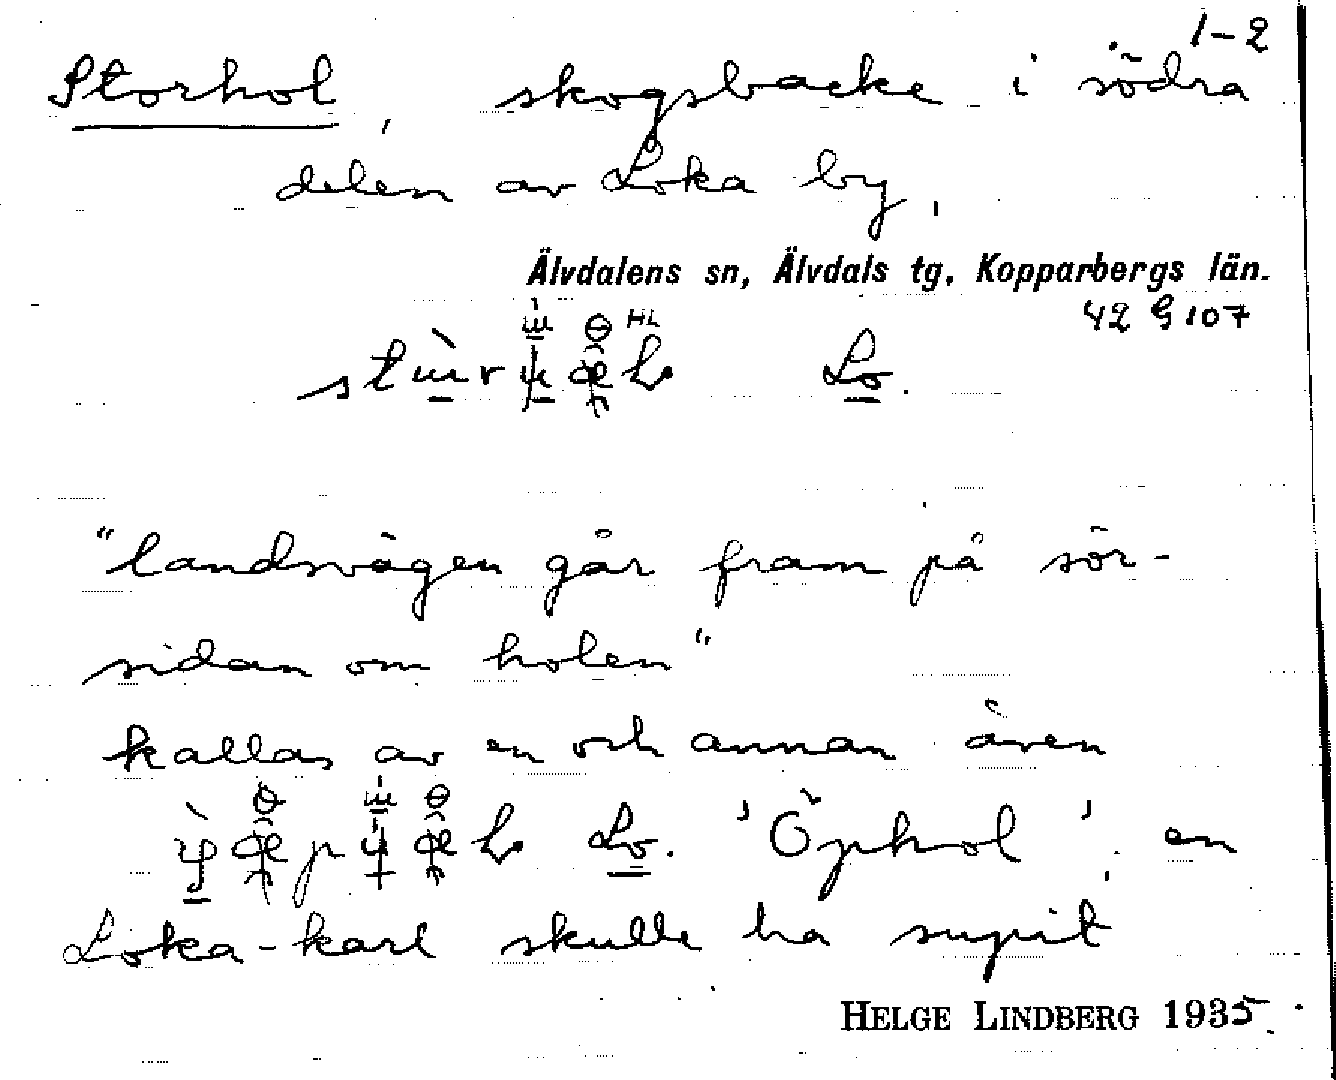 1-2
Storhol, skogsbacke i södra
delen av Loka by,
Älvdalens sn, Älvdals tg, Kopparbergs län.
42 G 107
HL
Lo.
"landsvägen går fram på sör-
sidan om holen"
kallas av en och annan även
Lo. 'Öphol', en
Loka-karl skulle ha supit
HELGE LINDBERG 1935.